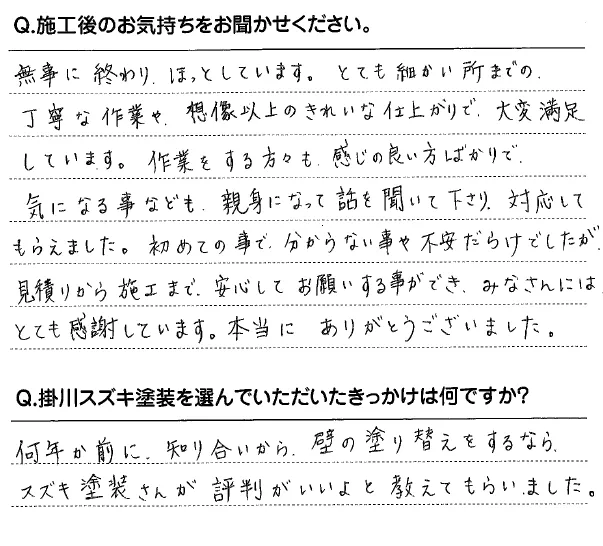 Q.施工後のお気持ちをお聞かせください。
無事に終わり、ほっとしています。とても細かい所までの、
丁寧な作業や、想像以上のきれいな仕上がりで、大変満足
しています。作業をする方々も、感じの良い方ばかりで、
気になる事なども、親身になって話を聞いて下さり、対応して
もらえました。初めての事で、分からない事や不安だらけでしたが、
見積りから施工まで、安心してお願いする事ができ、みなさんには、
とても感謝しています。本当に ありがとうございました。
Q.掛川スズキ塗装を選んでいただいたきっかけは何ですか?
何年か前に、知り合いから、壁の塗り替えをするなら、
スズキ塗装さんが評判がいいよと教えてもらいました。